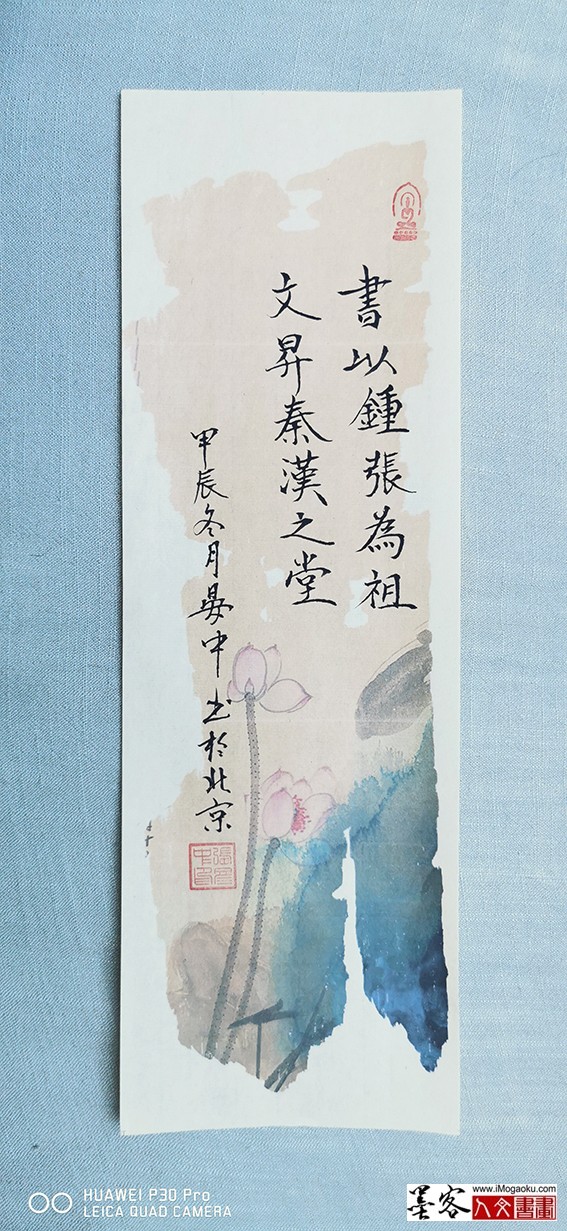 書以鍾張為祖
文昇秦漢之堂
甲辰冬月晏中书於北京
HUAWEI P30 Pro
LEICA QUAD CAMERA
www.iMogaoku.com
墨客人文書畫